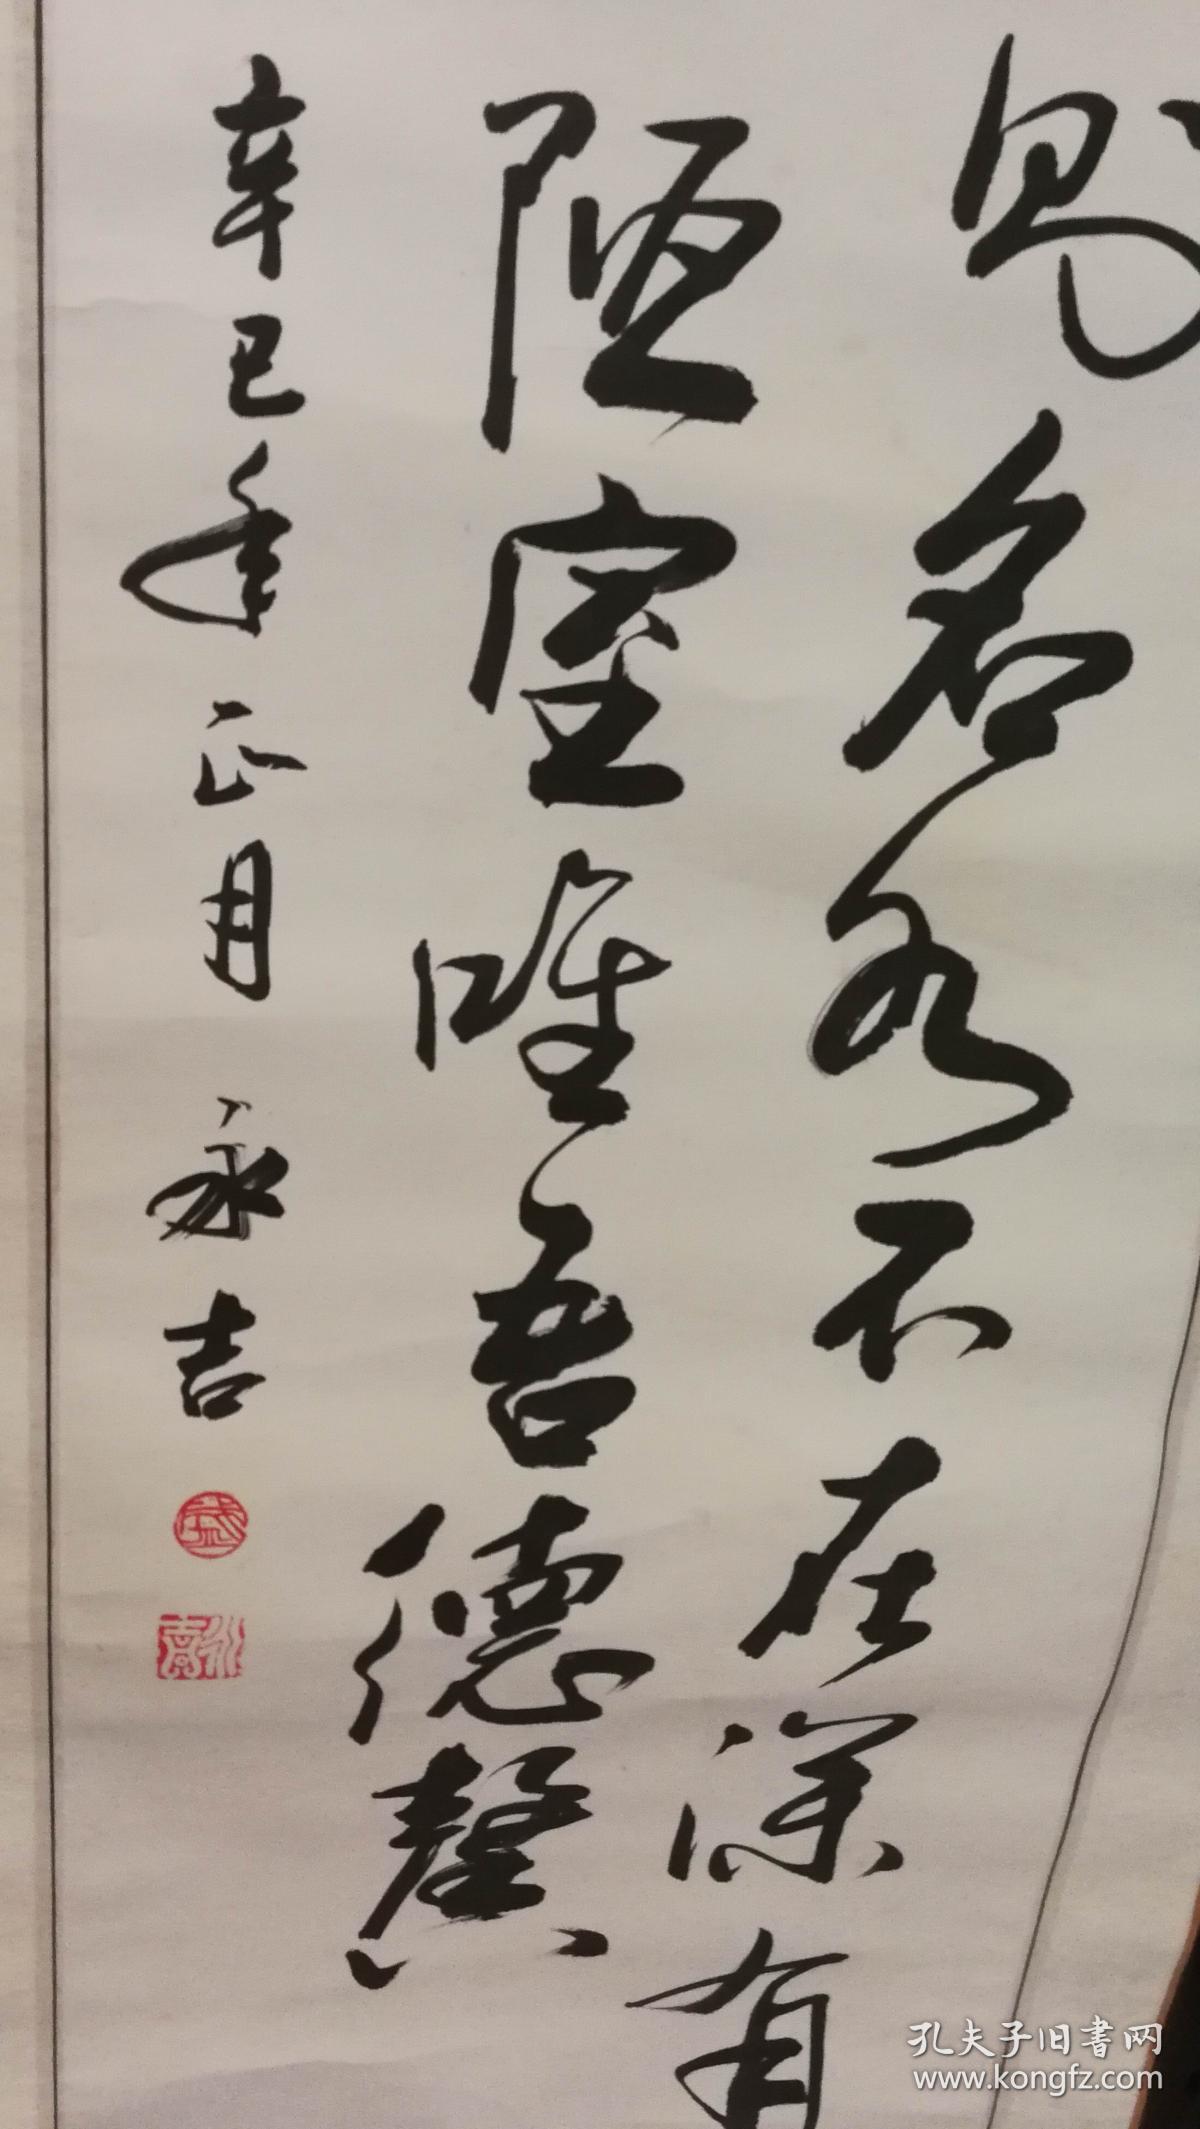 则名水不在深有
陋室唯吾德馨
辛巳年正月 永吉
孔夫子旧書网
www.kongfz.com